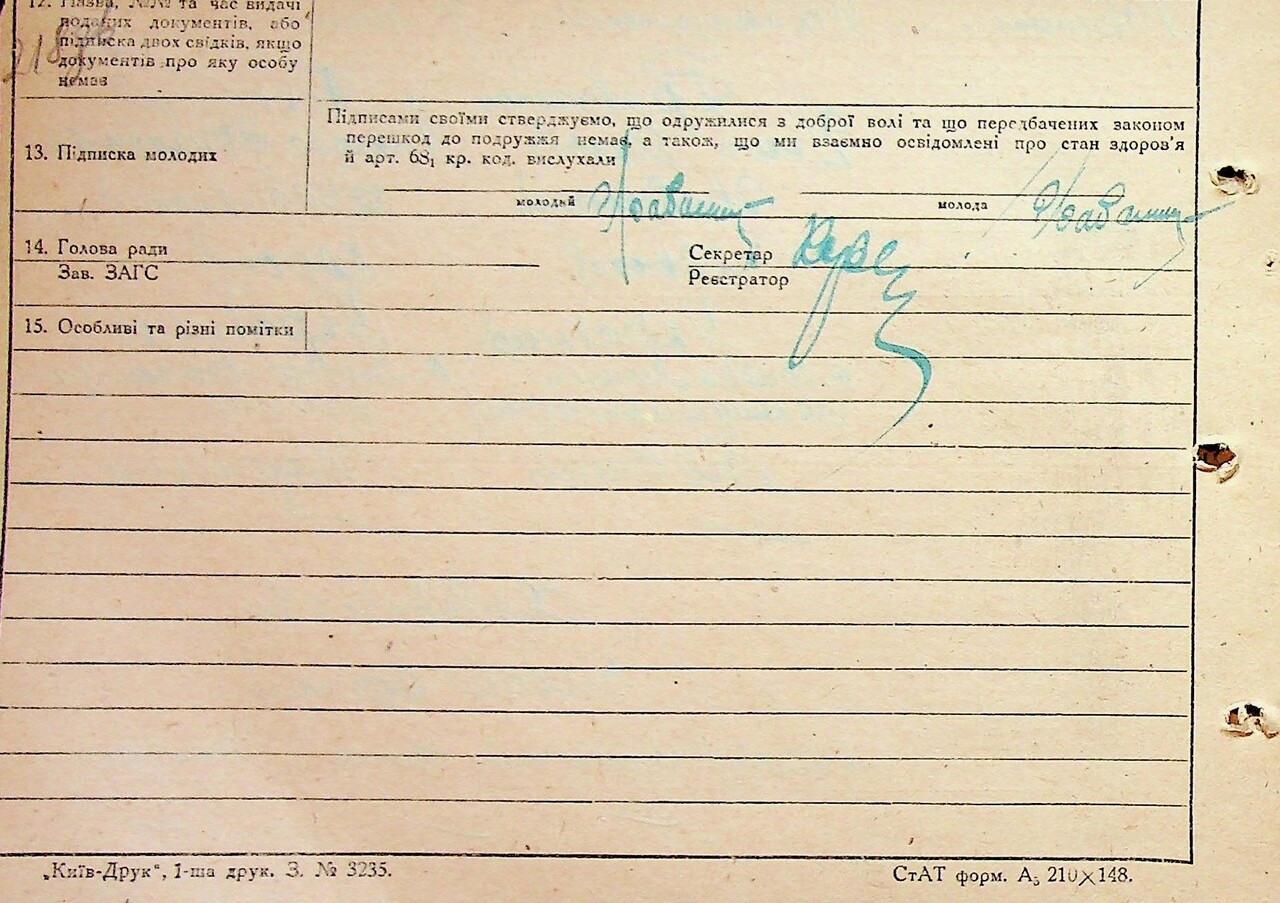 12. Назва, №№ та час видачі
поданих документів, або
підписка двох свідків, якщо
документів про яку особу
немає
13. Підписка молодих
Підписами своїми стверджуємо, що одружилися з доброї волі та що передбачених законом
перешкод до подружжя немає, а також, що ми взаємно освідомлені про стан здоров'я
й арт. 68₁ кр. код. вислухали
молодый молода
14. Голова ради Секретар
Зав. ЗАГС Реєстратор
15. Особливі та різні помітки
„Київ-Друк“, 1-ша друк. З. № 3235. СтАТ форм. А₅ 210×148.